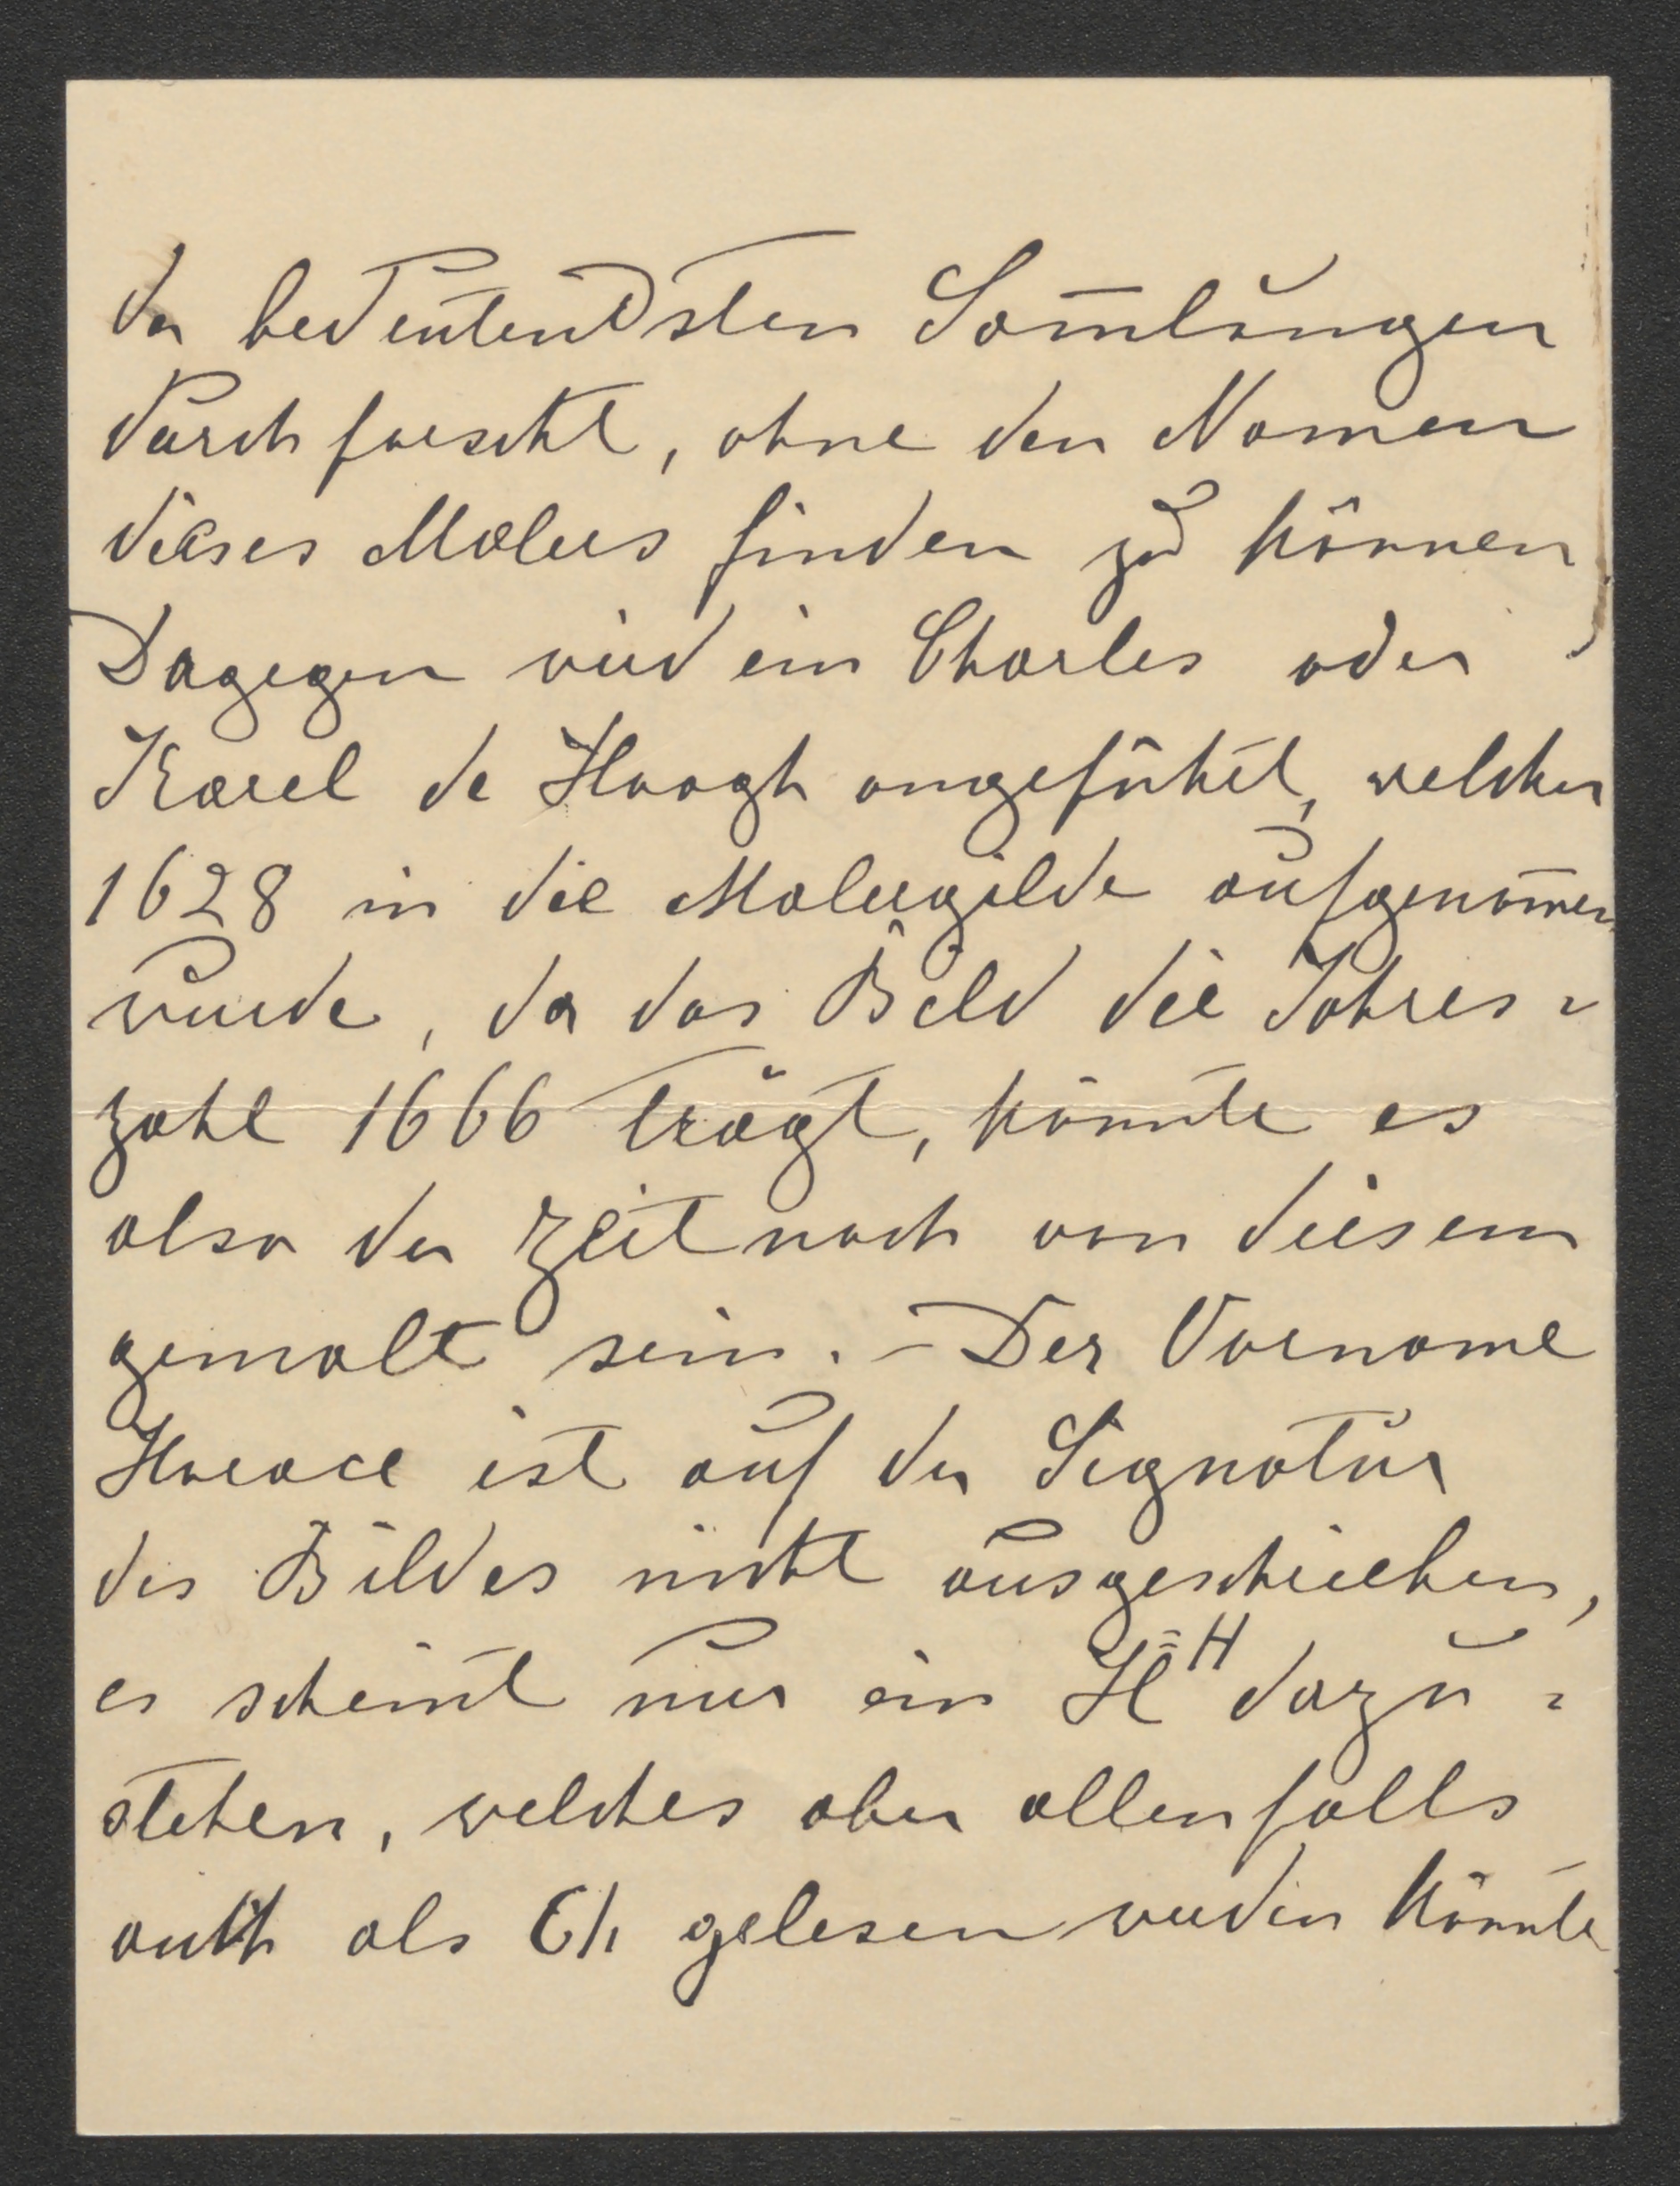 der bedeutendsten Som̄lungen
durchforscht, ohne den Namen
dieses Malers finden zu können
Dagegen wird ein Charles oder
Karel de Hoogh angeführt, welcher
1628 in die Malergilde aufgenom̄en
wurde, da das Bild die Jahres=
zahl 1666 trägt, könnte es
also der Zeit nach von diesem
gemalt sein. - Der Vorname
Horace ist auf der Signatur
des Bildes nicht ausgeschrieben,
es scheint nur ein H = H dazu=
stehen, welches aber allenfalls
auch als Ch gelesen werden könnte